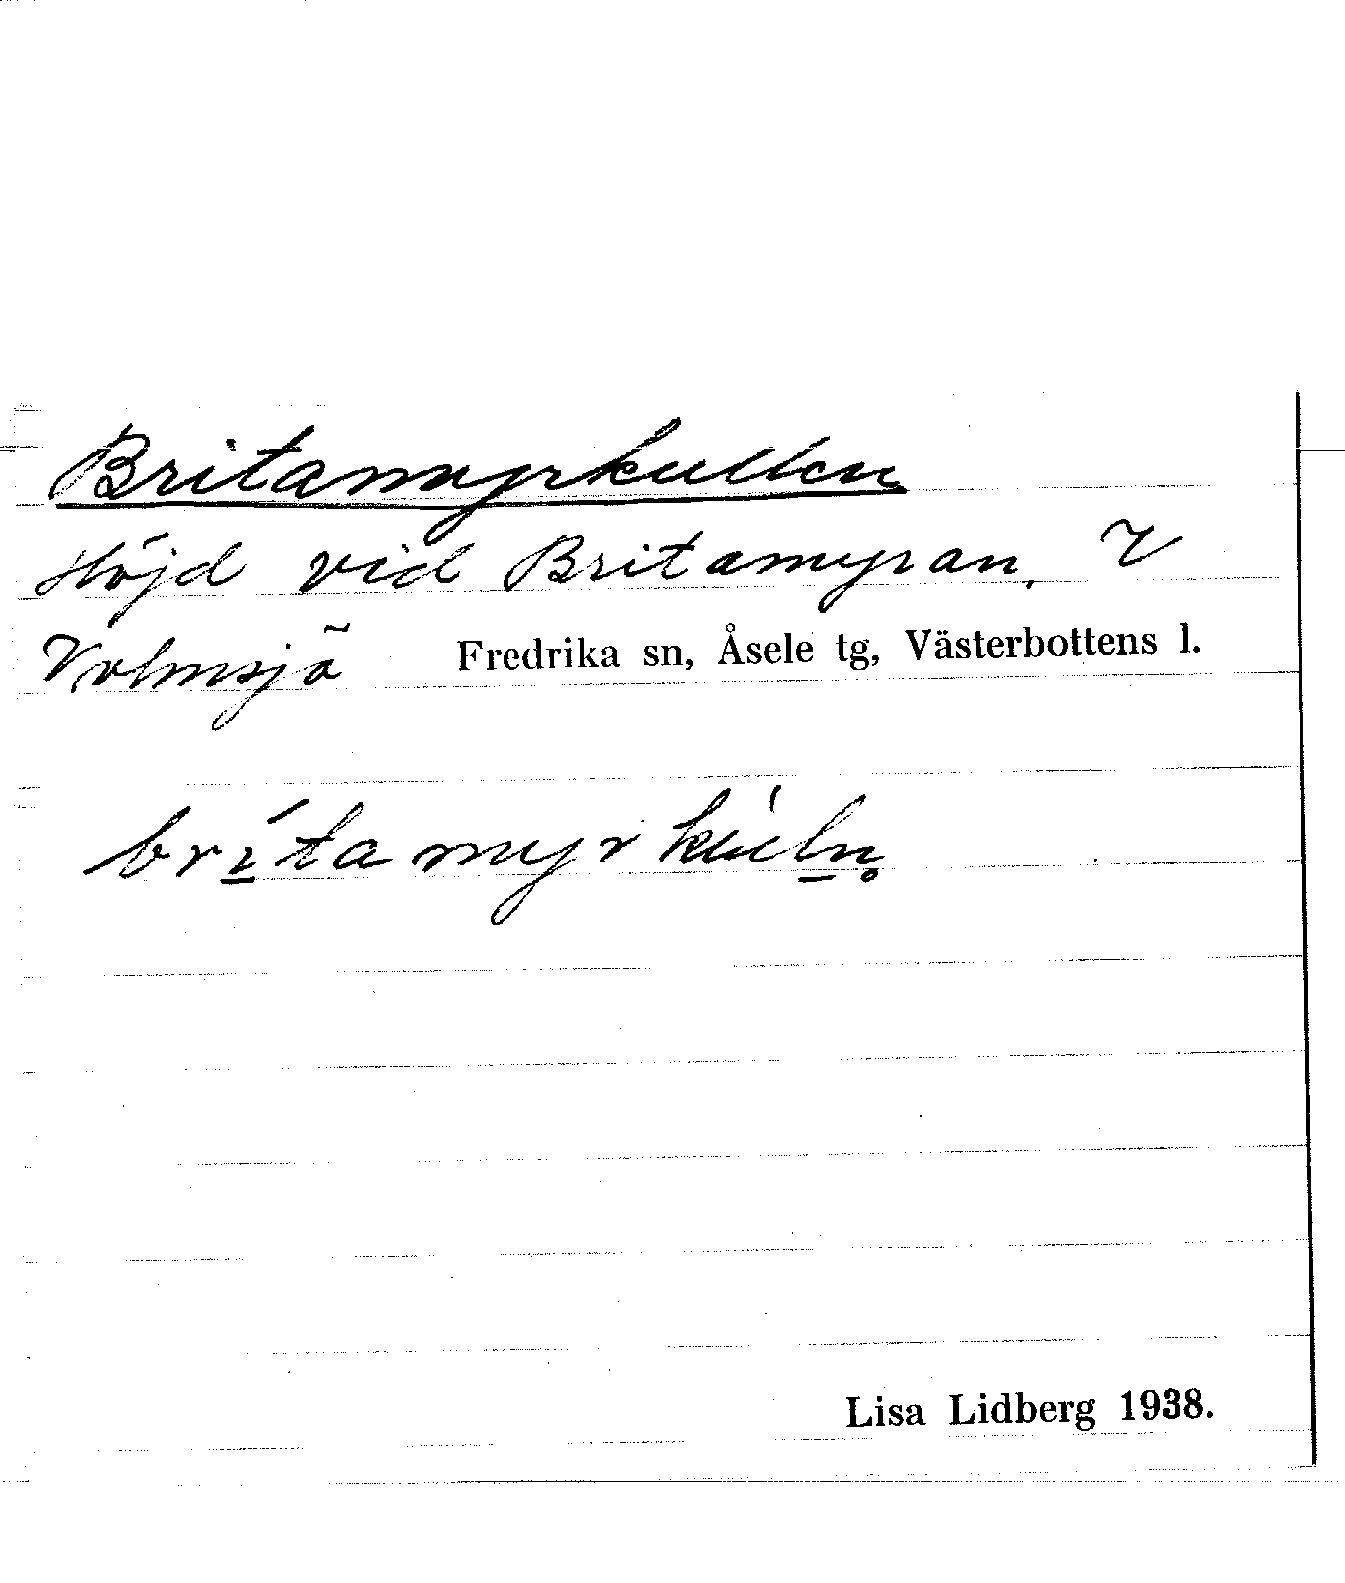 Britamyrkullen
Höjd vid Britamyran, V
Volmsjö Fredrika sn, Åsele tg, Västerbottens l.
brí̲tamyrkúl̲n̥
Lisa Lidberg 1938.